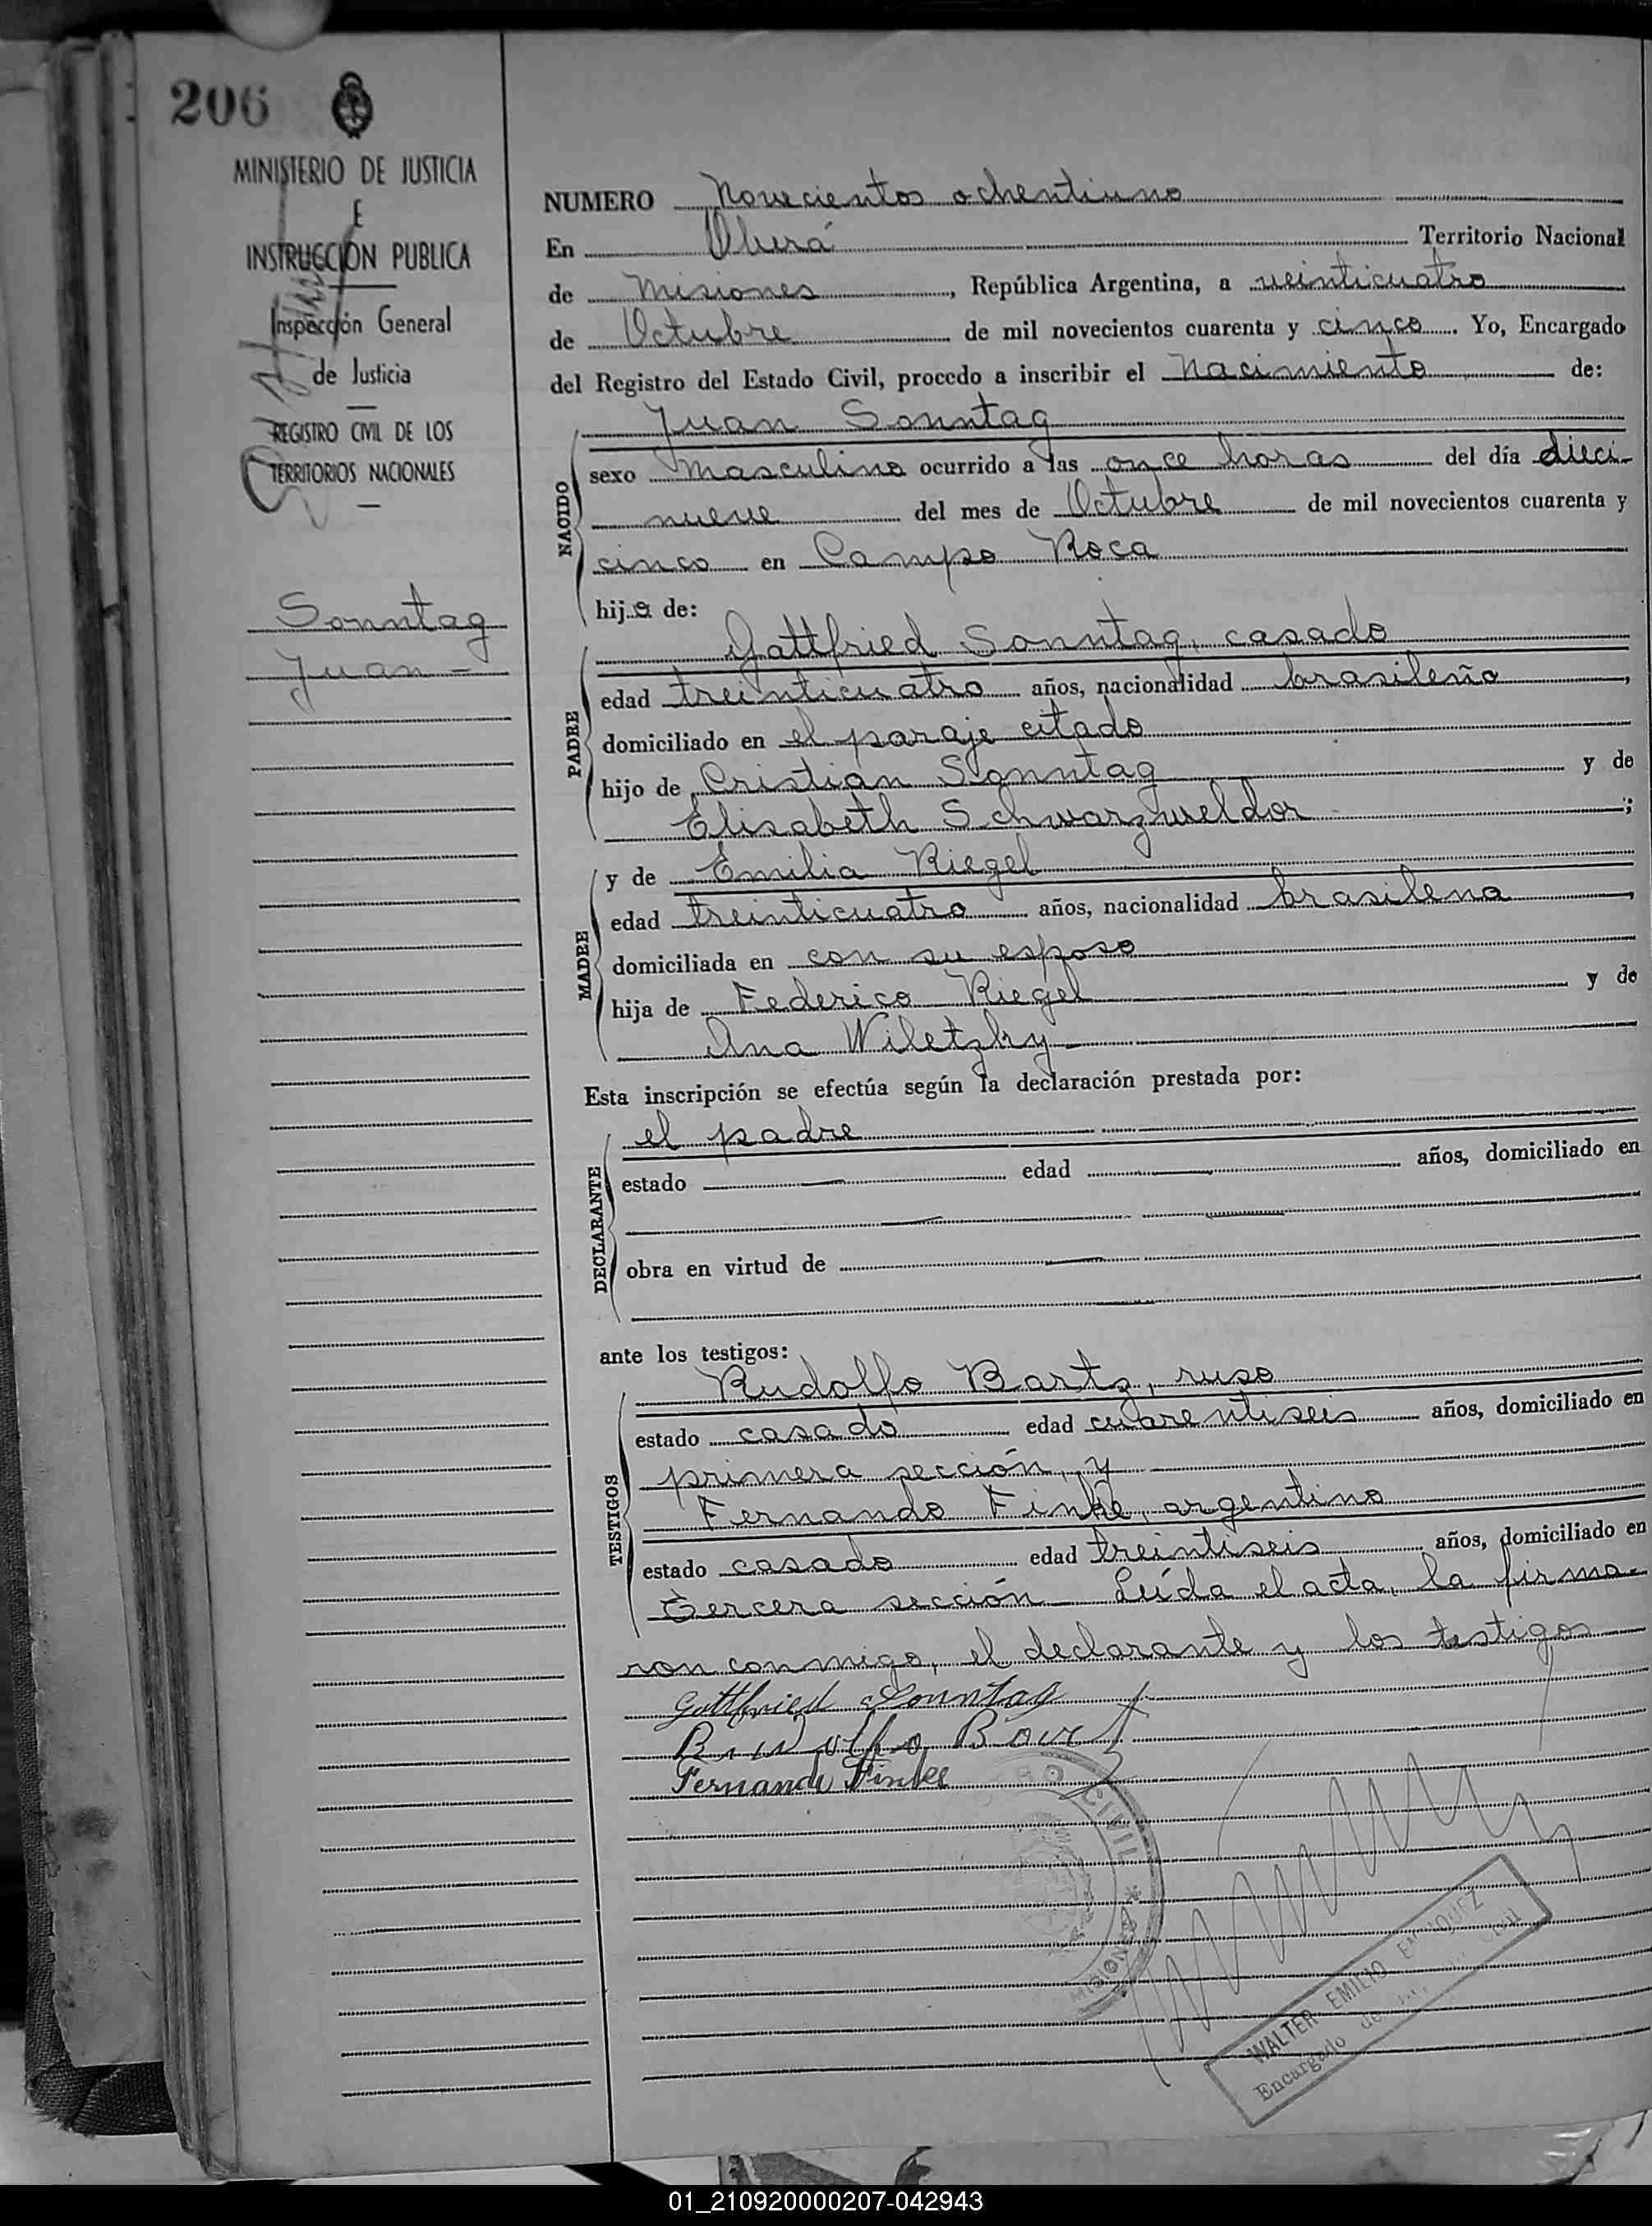 206
MINISTERIO DE JUSTICIA
E
INSTRUCCIÓN PUBLICA
Inspección General
de Justicia
REGISTRO CIVIL DE LOS
TERRITORIOS NACIONALES
Sonntag
Juan -
NUMERO Novecientos ochentiuno
En Oberá Territorio Nacional
de Misiones, República Argentina, a veinticuatro
de Octubre de mil novecientos cuarenta y cinco. Yo, Encargado
del Registro del Estado Civil, procedo a inscribir el Nacimiento de:
NACIDO
Juan Sonntag
sexo masculino ocurrido a las once horas del día dieci-
nueve del mes de Octubre de mil novecientos cuarenta y
cinco en Campo Roca
hijo de:
PADRE
Gattfried Sonntag, casado
edad treinticuatro años, nacionalidad brasileño,
domiciliado en el paraje citado
hijo de Cristian Sonntag y de
Elisabeth Schwarzweldor;
MADRE
y de Emilia Riegel
edad treinticuatro años, nacionalidad brasilena,
domiciliada en con su esposo
hija de Federico Riegel y de
Ana Wiletzky
Esta inscripción se efectúa según la declaración prestada por:
DECLARANTE
el padre
estado — edad — años, domiciliado en
obra en virtud de —
ante los testigos:
TESTIGOS
Rudolfo Bartz, ruso
estado casado edad cuarentiseis años, domiciliado en
primera sección, y
Fernando Finke, argentino
estado casado edad treintiseis años, domiciliado en
tercera sección - Leída el acta, la firma-
ron conmigo, el declarante y los testigos
Gottfried Sonntag
Rudolfo Bartz
Fernando Finke
CIVIL * MISIONES
WALTER EMILIO ENRIQUEZ
Encargado de Civil
01_210920000207-042943